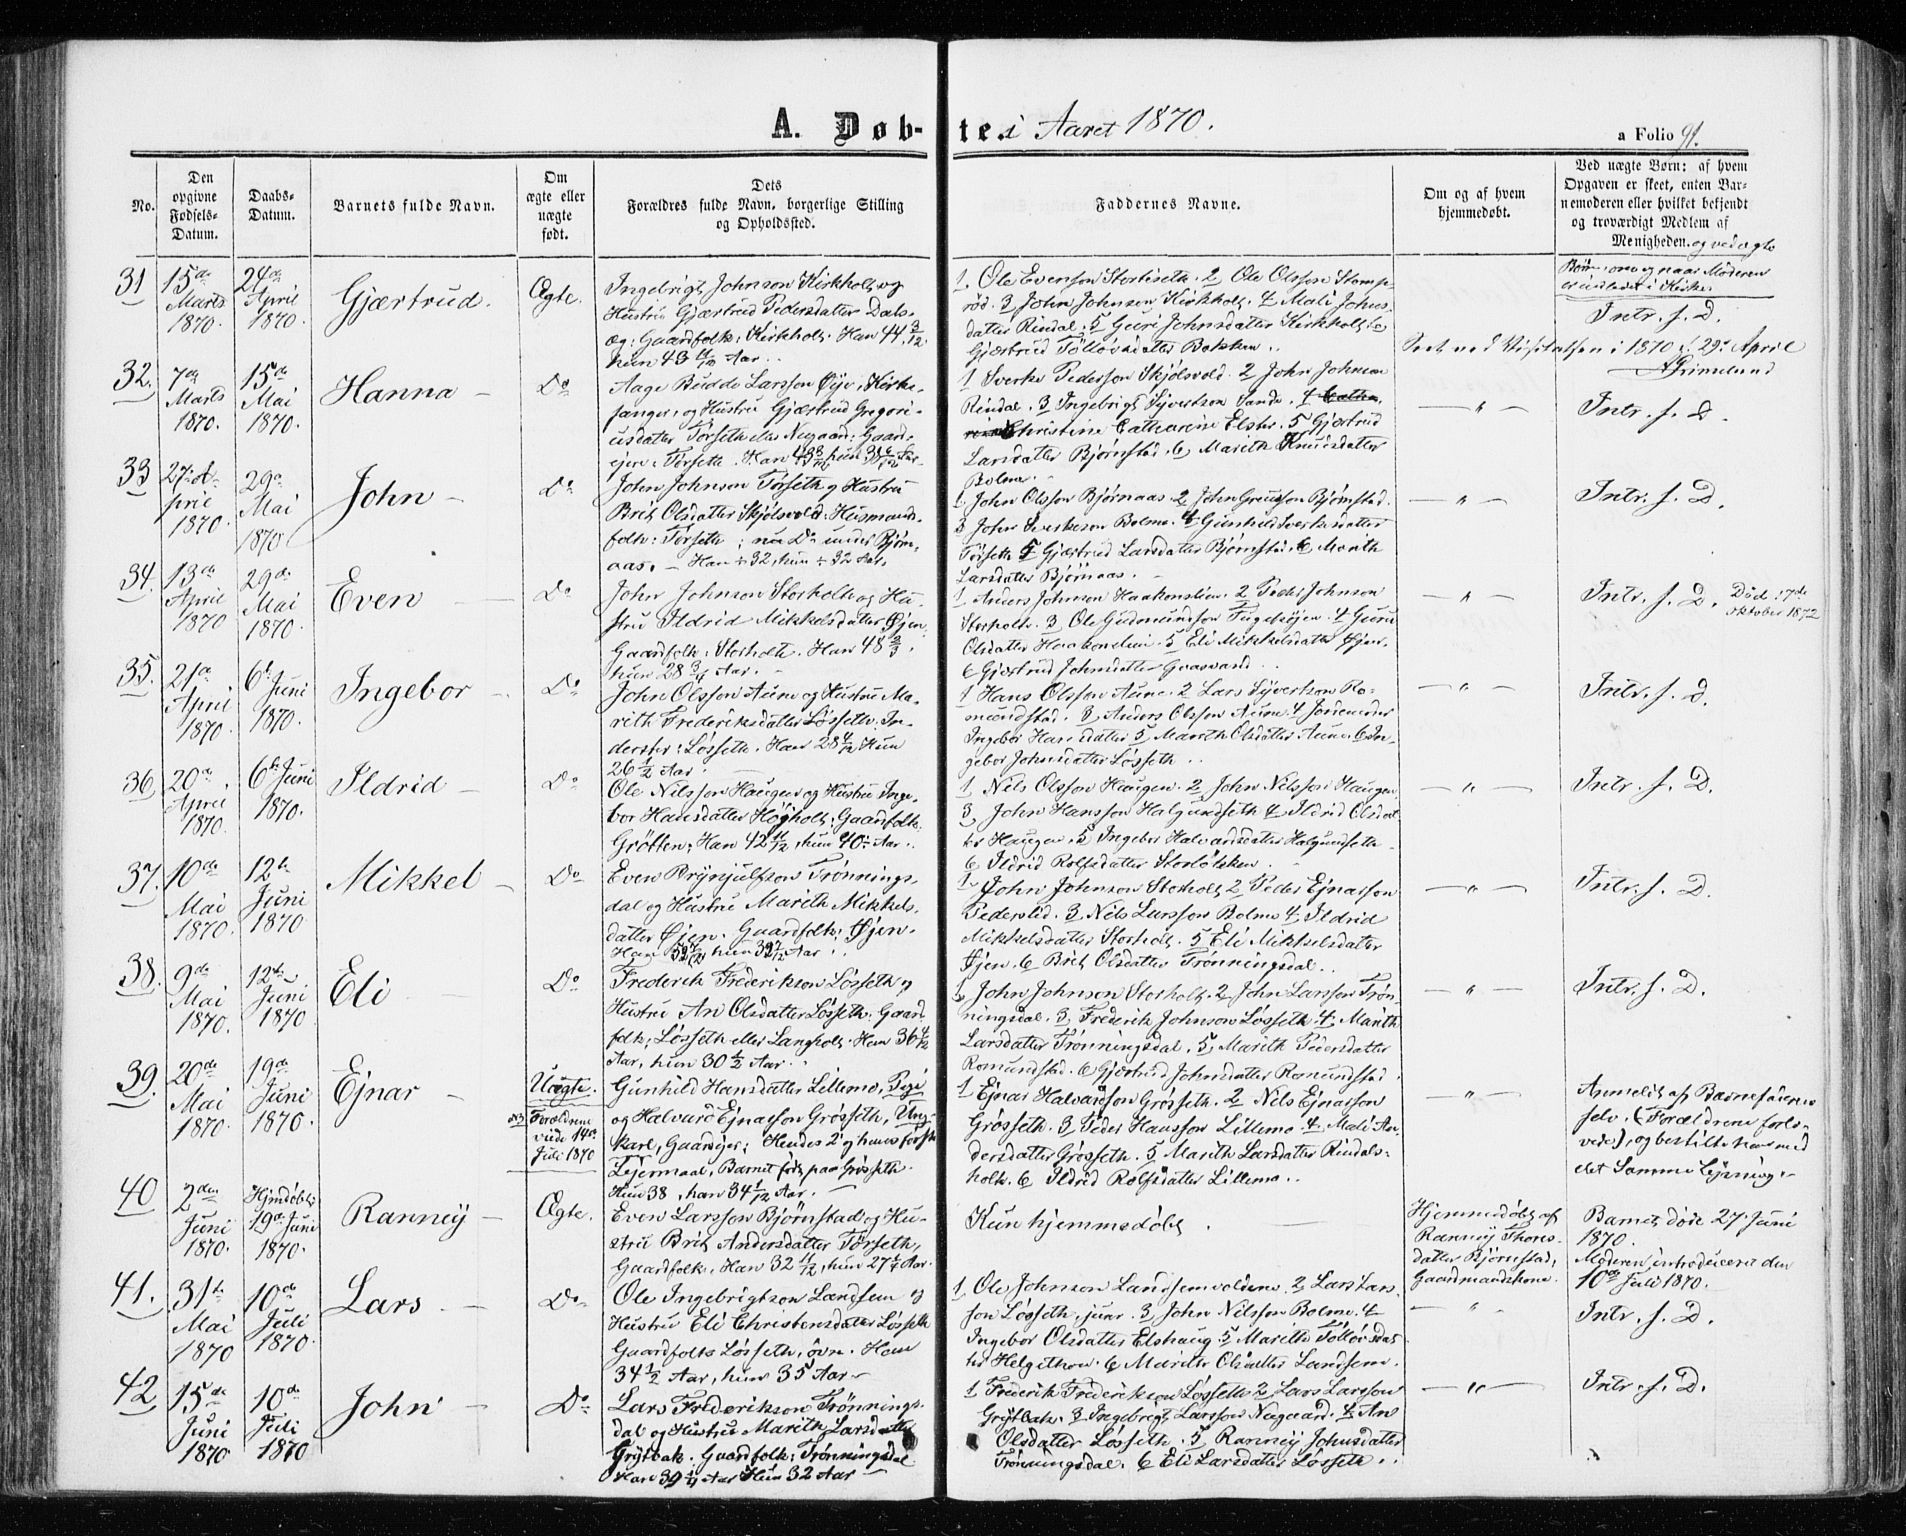 A. Døb-
te i Aaret 1870.
a Folio 91.
No.
Den
opgivne
Fødsels-
Datum.
Daabs-
Datum.
Barnets fulde Navn.
Om
ægte eller
uægte
født.
Dets
Forældres fulde Navn, borgerlige Stilling
og Opholdssted.
Faddernes Navne.
Om og af hvem
hjemmedøbt.
Ved uægte Børn: af hvem
Opgaven er skeet, enten Bar-
nemoderen eller hvilket bekjendt
og troværdigt Medlem af
Menigheden. og ved ægte
Børn, om og naar Moderen
er indledet i Kirke.
31
15de
Marts
1870.
24de
April
1870.
Gjærtrud.
Ægte.
Ingebrigt Johnson Kirkholt og
Hustru Gjærtrud Pedersdatter Dals-
øg: Gaardfolk: Kirkholt. Han 44 3/12.
hun 43 11/12 Aar.
1, Ole Evenson Stortiseth. 2 Ole Olsson Stomp-
rød. 3 John Johnson Kirkholt. 4 Mali Johns-
datter Rindal. 5 Guri Johnsdatter Kirkholt 6
Gjærtrud Tølløvsdatter Bakken.
Intr. s. D.
Seet ved Visitatsen i 1870 d. 29. April
AGrimelund
32.
7de
Marts
1870.
15de
Mai
1870.
Hanna
Do
Aage Budde Larsson Øye, Kirke-
sanger, og Hustru Gjærtrud Gregori-
usdatter Tørseth eller Nygaard: Gaard-
ejere: Tørseth. Han 43 8/12 hun 38 6/12 Aar.
1 Sverke Pederson Skjølsvold. 2 John Johnson
Rindal. 3 Ingebrigt Syvertson Sande. 4
Christine Catharine Elster. 5 Gjærtrud
Larsdatter Bjørnstad. 6 Marith Knudsdatter
Bolme.
Intr. s. D.
33
27. A-
pril
1870.
29de
Mai
1870
John
Do
John Johnson Tørseth og Hustru
Brit Olsdatter Skjølsvold. Husmands-
folk: Tørseth; nu Do under Bjørn-
aas. — Han ÷ 32, hun ÷ 32 Aar.
1 John Olsson Bjørnaas. 2 John Greusson Bjørnstad.
3 John Sverkeson Bolme. 4 Gunhild Sverkesdatter
Tørseth 5 Gjærtrud Larsdatter Bjørnstad. 6 Marith
Larsdatter Bjørnaas.
Intr. s. D.
34.
13de
April
1870
29de
Mai
1870.
Even
Do
John Johnson Storholt og Hu-
stru Ildrid Mikkelsdatter Øjen.
Gaardfolk: Storholt. Han 48 2/3.
hun 28 3/4 Aar.
1, Anders Johnson Haakonslien. 2 Peder Johnson
Storholt. 3 Ole Gudmundson Fugelsøjen. 4 Guru
Olsdatter Haakonslien. 5 Eli Mikkelsdatter Øjen.
6 Gjærtrud Johnsdatter Graasvand.
Intr. s. D. Død 17de
Oktober 1872
35.
21de
April
1870.
6te Juni
1870.
Ingebor
Do
John Olsson Aune og Hustru Ma-
rith Frederiksdatter Løsseth. In-
derster: Løsseth. Han 28 4/12 Hun
26 1/2 Aar.
1 Hans Olsson Aune. 2 Lars Syvertson Ro-
mundstad. 3, Anders Olsson Aune 4 Jordemoder
Ingebor Hansdatter 5 Marith Olsdatter Aune. 6 In-
gebor Johnsdatter Løsseth.
Intr. s. D.
36,
20de
April
1870.
6te Juni
1870.
Ildrid
Do
Ole Nilsson Haugen og Hustru Inge-
bor Hansdatter Høgholt: Gaardfolk:
Grötten: Han 42 11/12, hun 40 Aar.
1, Nils Olsson Haugen. 2 John Nilsson Haugen
3, John Hansson Halgundseth 4 Ildrid Olsdat-
ter Haugen. 5 Ingebor Halvardsdatter Halgundseth
6 Ildrid Rolfsdatter Storløkken.
Intr. s. D.
37.
10de
Mai
1870.
12te
Juni
1870
Mikkel
Do
Even Brynjulfson Trønnings-
dal og Hustru Marith Mikkels-
datter Øjen. Gaardfolk: Øjen.
hun 32 7/12 Aar.
1, John Johnson Storholt 2 Peder Ejnarson
Pederslid. 3 Nils Larsson Bolme 4 Ildrid
Mikkelsdatter Storholt. 5 Eli Mikkelsdatter
Øjen. 6 Brit Olsdatter Trønningsdal.
Intr. s. D.
38.
9de
Mai
1870.
12te
Juni
1870
Eli
Do
Frederik Frederikson Løsseth og
Hustru An Olsdatter Løsseth. Gaard-
folk; Løsseth eller Langholt. Han 36 4/12
Aar, hun 30 1/2 Aar.
1, John Johnson Storholt. 2 John Larsson Trøn-
ningsdal. 3 Frederik Johnson Løsseth 4, Marith
Larsdatter Trønningsdal. 5, Marith Pedersdatter
Romundstad. 6 Gjærtrud Johnsdatter Romundstad.
Intr. s. D.
39.
20de
Mai
1870.
19de
Juni
1870.
Ejnar
Uægte.
NB Forældrene
viede 14de
Juli 1870
Gunhild Hansdatter Lillemo, Pige
og Halvard Ejnarson Grøsseth, Ung-
karl, Gaardejer; Hendes 2. og hans første
Lejermaal, Barnet født paa Grøsseth.
Hun 38, han 34 1/12 Aar.
1 Ejnar Halvardson Grøsseth. 2, Nils Ejnarson
Grøsseth. 3 Peder Hansson Lillemo. 4 Mali An-
dersdatter Grøsseth. 5 Marith Larsdatter Rindals-
holt. 6 Ildrid Rolfsdatter Lillemo.
Anmeldt af Barnefaderen
selv. (Forældrene forlo-
vede), og bestilte han med
det Samme Lysning.
40
2den
Juni
1870.
Hjmdøbt
19de Juni
1870.
Ranney
Ægte.
Even Larsson Bjørnstad og Hu-
stru Brit Andersdatter Tørseth,
Gaardfolk. Han 32 11/12, hun 27 Aar.
Kun hjemmedøbt.
Hjemmedøbt af
Ranney Thores-
datter Bjørnstad,
Gaardmandskone.
Barnet døde 27. Juni
1870.
Moderen introduceret den
10de Juli 1870.
41.
31te
Mai
1870
10de
Juli
1870.
Lars
Do
Ole Ingebrigtson Landsem og
Hustru Eli Christensdatter Løsseth
Gaardfolk Løsseth, øvre. Han
34 1/2 Aar, hun 35 Aar
1, Ole Johnson Landsemvolden. 2 Lars Lars-
son Løsseth, junr. 3 John Nilsson Bolme. 4
Ingebor Olsdatter Elshaug. 5 Marith Tølløvsdat-
ter Helgethon. 6 Marith Olsdatter Landsem.
Intr. s. D.
42
15de
Juni
1870
10de
Juli
1870
John
Do
Lars Frederikson Trønnings-
dal og Hustru Marith Larsdatter
Grytbak. Gaardfolk: Trønningsdal
Han 39 1/4 Aar Hun 32 Aar
1 Frederik Frederikson Løsseth 2, Lars Larsson
Grytbak. 3 Ingebrigt Larsson Nygaard. 4 An
Olsdatter Løsseth. 5 Ranney Johnsdatter
Trønningsdal. 6 Eli Larsdatter Løsseth.
Intr. s. D.